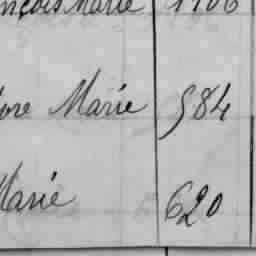 nçois Marie 1106
ore Marie 584
Marie 620